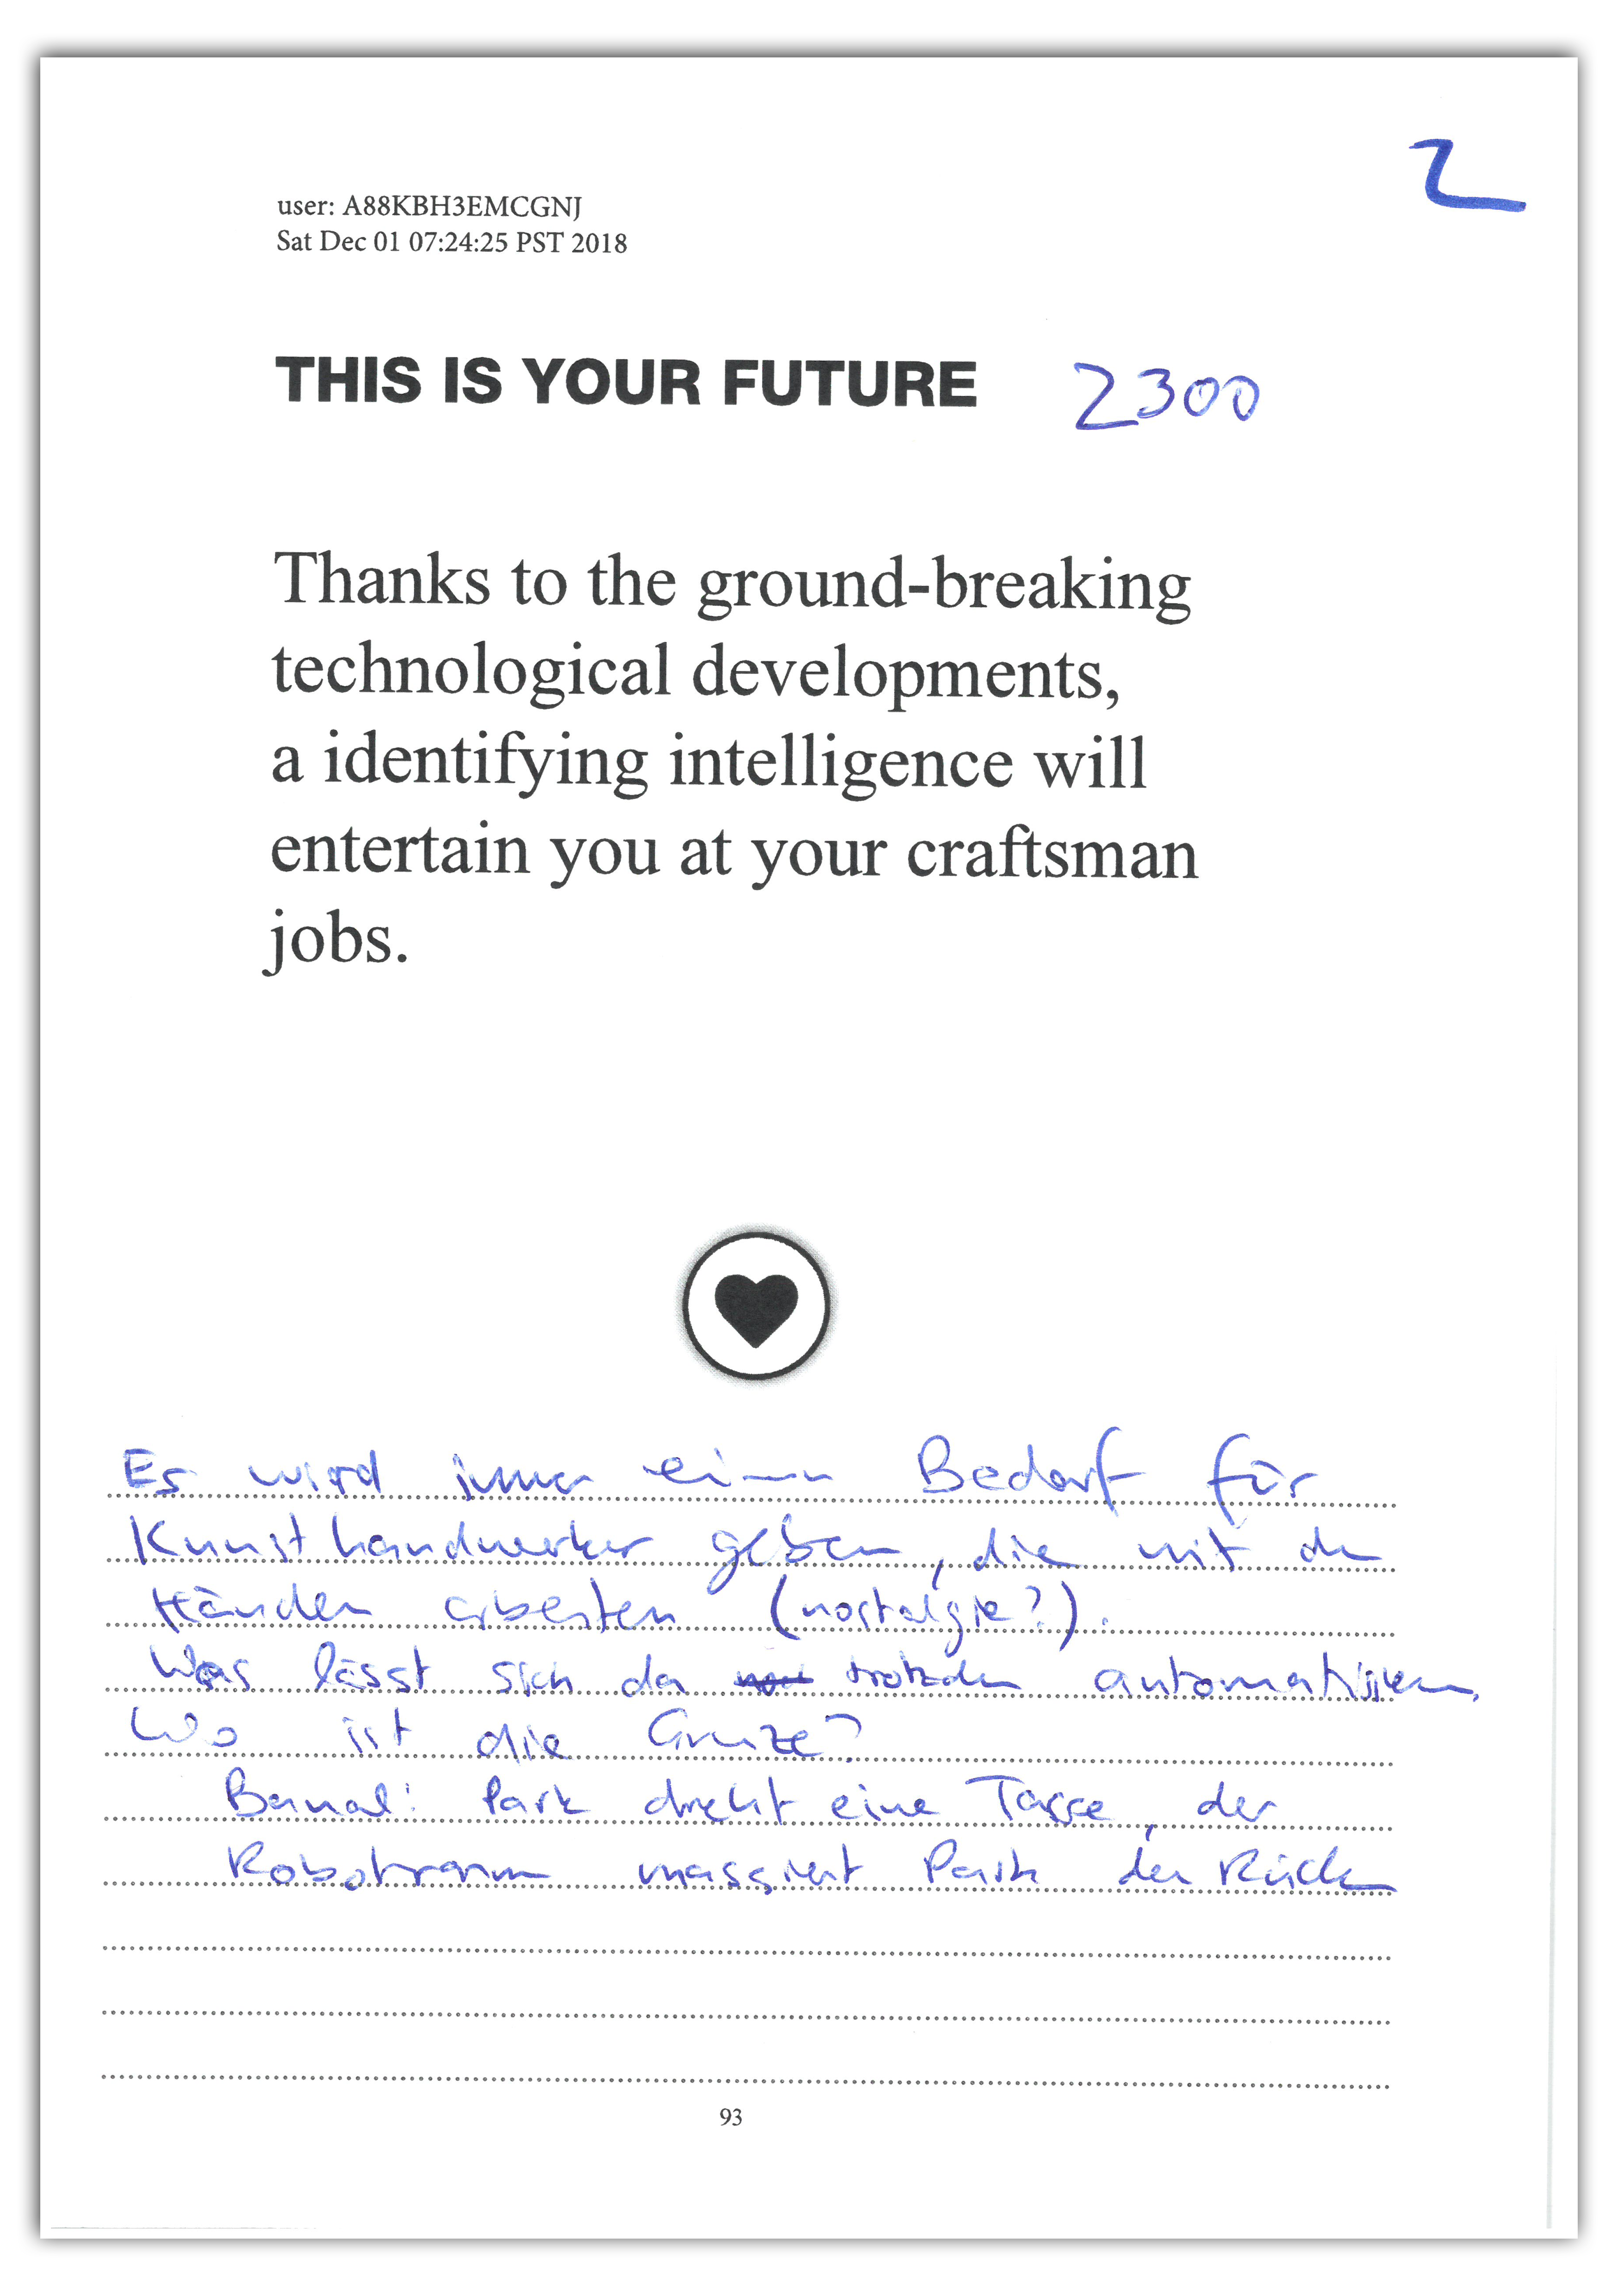 2
user: A88KBH3EMCGNJ
Sat Dec 01 07:24:25 PST 2018
THIS IS YOUR FUTURE 2300
Thanks to the ground-breaking
technological developments,
a identifying intelligence will
entertain you at your craftsman
jobs.
Es wird immer einen Bedarf für
Kunsthandwerker geben, die mit den
Händen arbeiten (nostalgie?).
Was lässt sich da trotzdem automatisieren,
Wo ist die Grenze?
Banal: Park dreht eine Tasse, der
Roboterarm massiert Park den Rücken
93